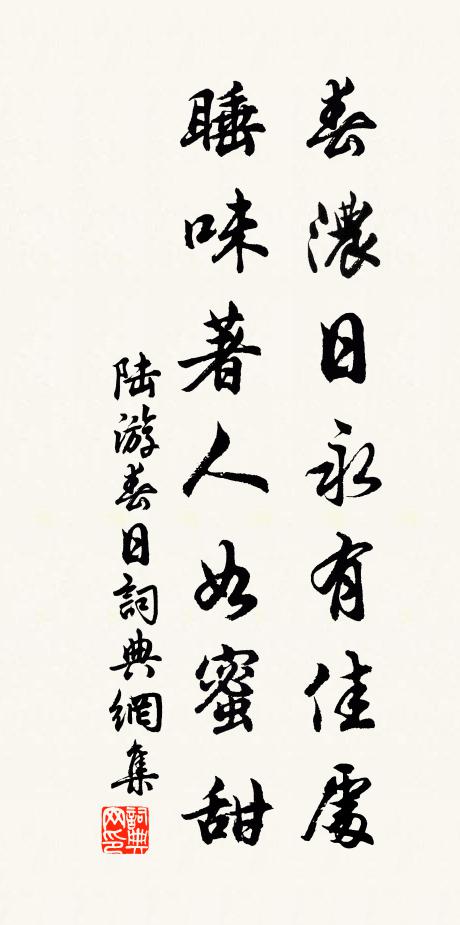 春濃日永有佳處
睡味著人如蜜甜
陸游春日詞典網集
詞典網印